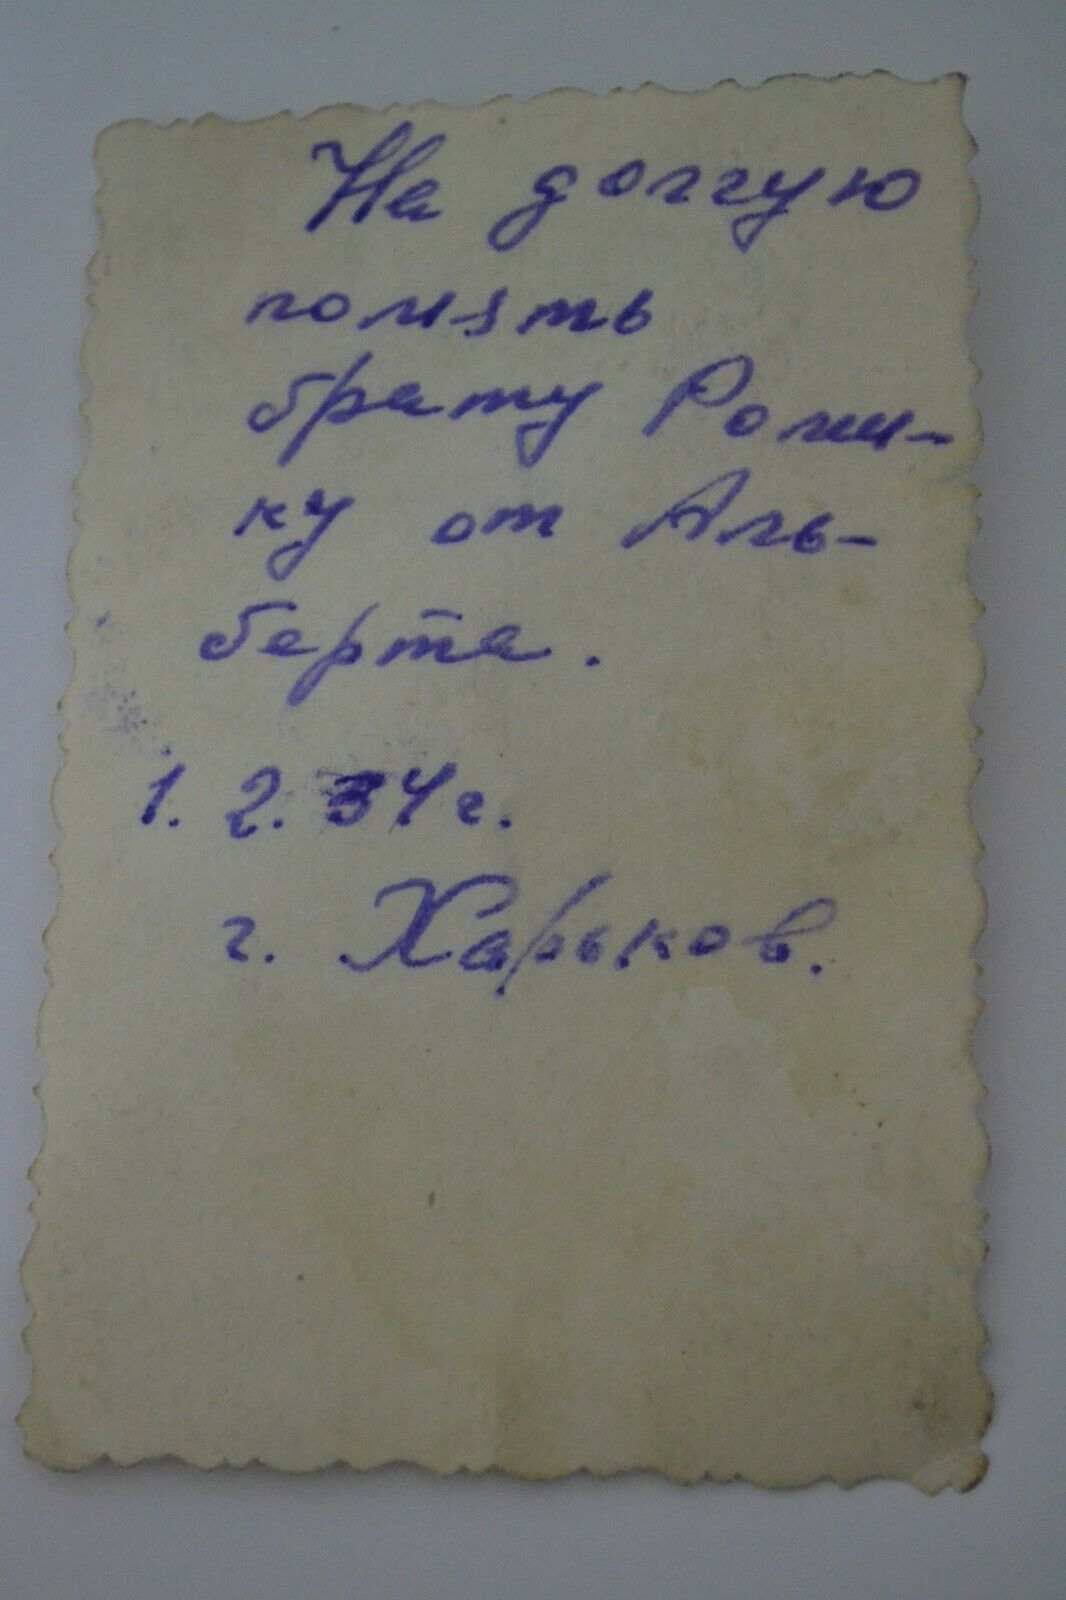 На долгую
помять
брату Роми-
ку от Аль-
берта.
1. 2. 34 г.
г. Харьков.